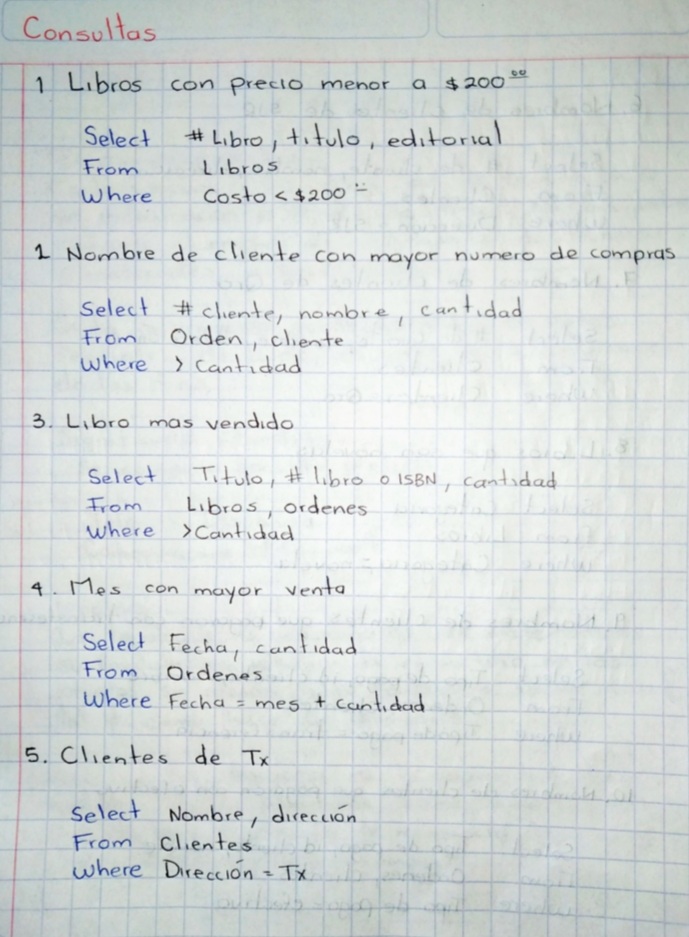 Consultas
1 Libros con precio menor a $200.00
Select # Libro, titulo, editorial
From Libros
Where Costo < $200
1 Nombre de cliente con mayor numero de compras
Select # cliente, nombre, cantidad
From Orden, cliente
Where > cantidad
3. Libro mas vendido
Select Titulo, # libro o ISBN, cantidad
From Libros, ordenes
Where >Cantidad
4. Mes con mayor venta
Select Fecha, cantidad
From Ordenes
Where Fecha = mes + cantidad
5. Clientes de Tx
Select Nombre, dirección
From Clientes
Where Dirección = Tx